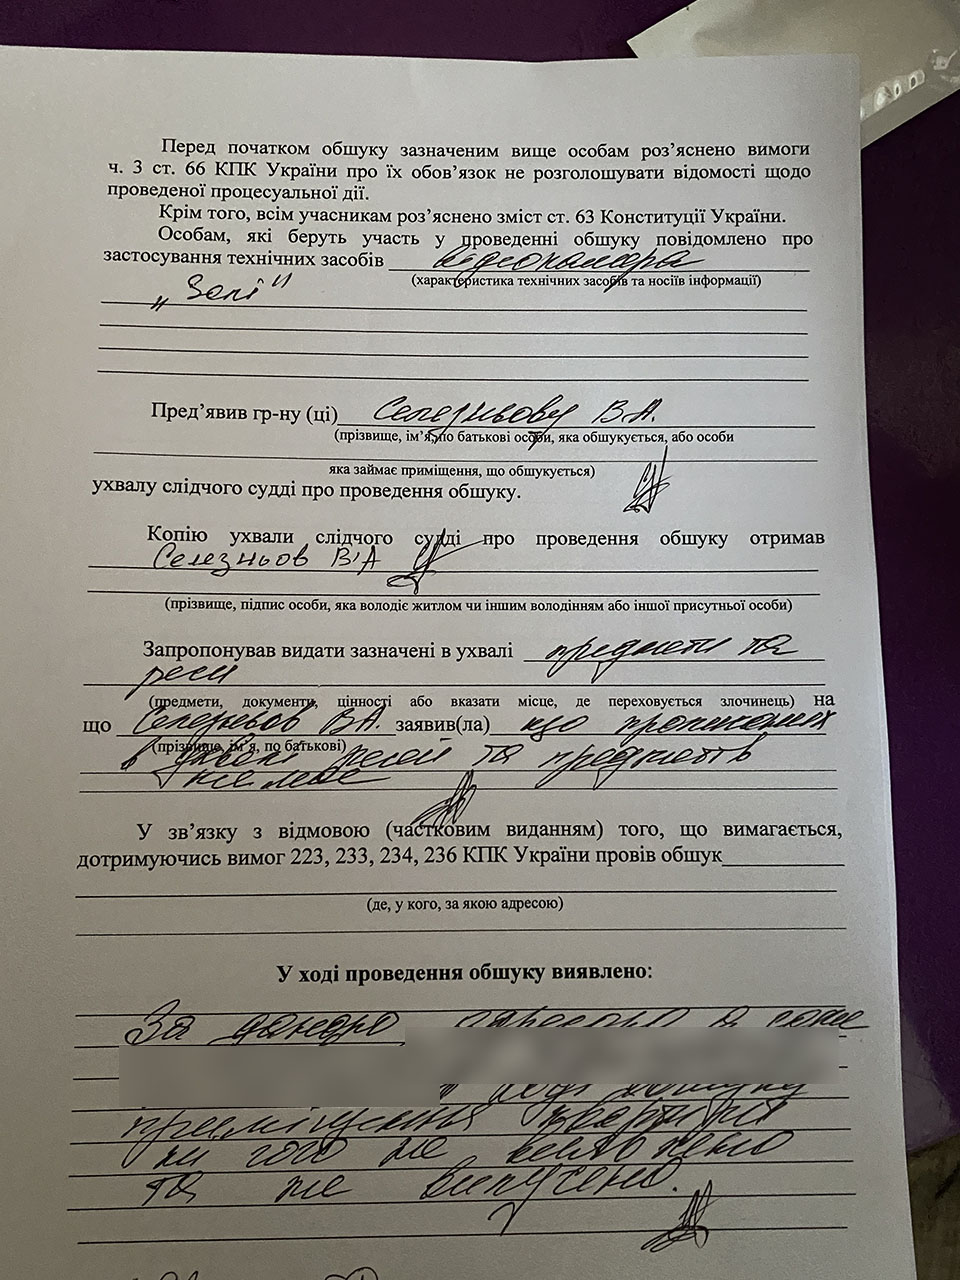 Перед початком обшуку зазначеним вище особам роз’яснено вимоги
ч. 3 ст. 66 КПК України про їх обов’язок не розголошувати відомості щодо
проведеної процесуальної дії.
Крім того, всім учасникам роз’яснено зміст ст. 63 Конституції України.
Особам, які беруть участь у проведенні обшуку повідомлено про
застосування технічних засобів відеокамера
(характеристика технічних засобів та носіїв інформації)
Пред’явив гр-ну (ці) Селезньову В.А.
(прізвище, ім’я, по батькові особи, яка обшукується, або особи
яка займає приміщення, що обшукується)
ухвалу слідчого судді про проведення обшуку.
Копію ухвали слідчого судді про проведення обшуку отримав
Селезньов В.А
(прізвище, підпис особи, яка володіє житлом чи іншим володінням або іншої присутньої особи)
Запропонував видати зазначені в ухвалі предмети та
речі
(предмети, документи, цінності або вказати місце, де переховується злочинець) на
що Селезньов В.А. заявив(ла) що прописаних
(прізвище, ім’я, по батькові)
в ухвалі речей та предметів
немає
У зв’язку з відмовою (частковим виданням) того, що вимагається,
дотримуючись вимог 223, 233, 234, 236 КПК України провів обшук
(де, у кого, за якою адресою)
У ході проведення обшуку виявлено:
За даною адресою а саме
ході обшуку
приміщення квартири
ні чого не виявлено
та не вилучено.